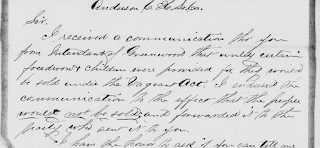 Anderson C. H. So.Ca.
Sir.
I received a communication thro you
from Intendant of Greenwood that unless certain
freedmen & children were provided for, they would
be sold under the Vagrant Act. I endorsed the
communication to the effect that the people
would not be sold, and forwarded it to the
party who sent it to you.
I have the honor to ask if you can tell me